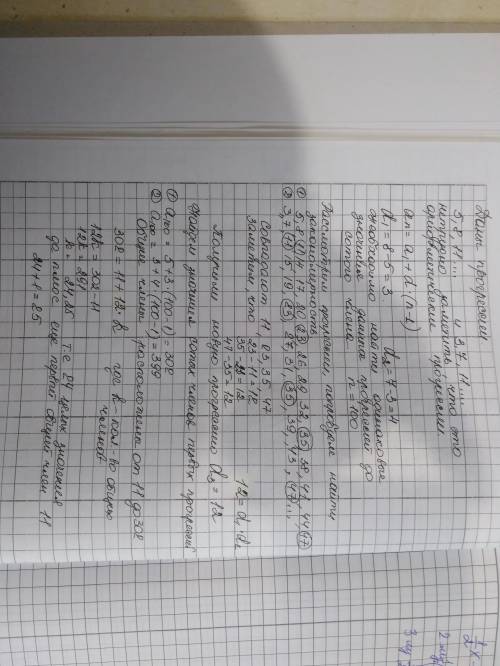 Даны прогрессии
5, 8, 11 ... и 3, 7, 11 ...
нетрудно заметить, что это
арифметические прогрессии.
an = a1 + d · (n-1)
d1 = 8-5 = 3 d2 = 7-3 = 4
необходимо найти одинаковые
значения данных прогрессий до
сотого члена. n = 100
Рассмотрим прогрессии, попробуем найти
закономерность
① 5, 8, 11, 14, 17, 20, 23, 26, 29, 32, 35, 38, 41, 44, 47
② 3, 7, 11, 15, 19, 23, 27, 31, 35, 39, 43, 47, ...
Совпадают 11, 23, 35, 47
Заметим, что 23-11 = 12
35-23 = 12 12 = d1 · d2
47-35 = 12
Получим новую прогрессию d3 = 12
Найдем значения сотых членов первых прогрессий
① a100 = 5+3·(100-1) = 302
② a100 = 3+4·(100-1) = 399
Общие члены расположены от 11 до 302
302 = 11 + 12 · k где k - кол-во общих
членов
12k = 302 - 11
12k = 291
k = 24,25 т.е. 24 целых значения
да плюс еще первый общий член 11
24+1 = 25